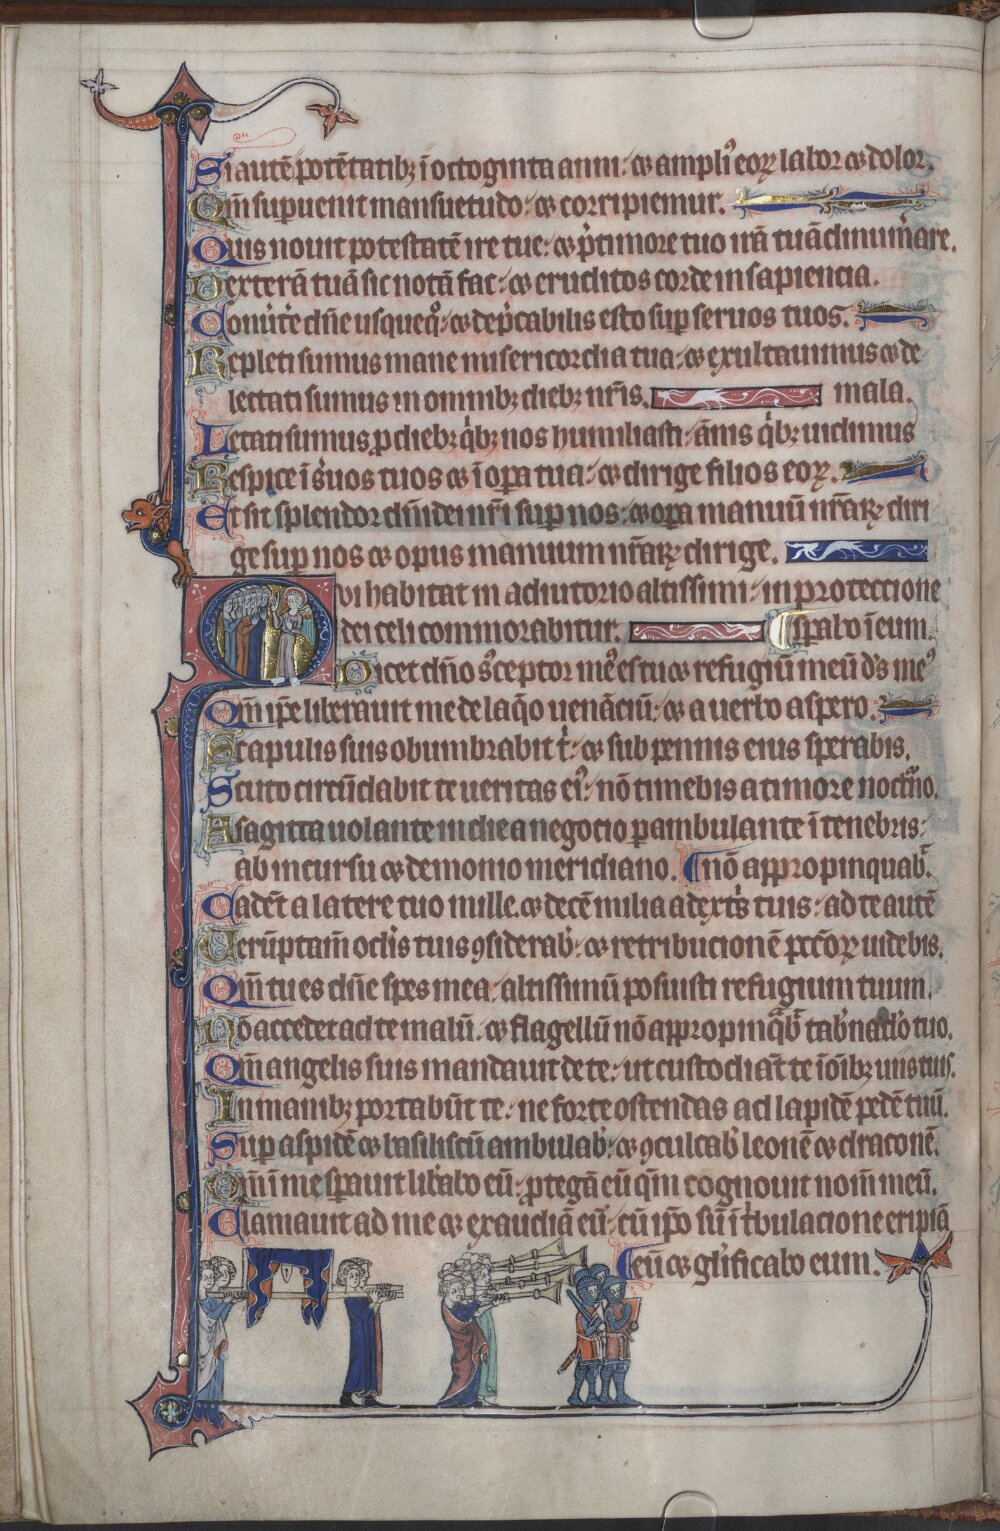 Si autē potētatibꝫ ī octoginta anni: ⁊ ampliꝰ eoꝝ labor ⁊ dolor.
Qm̄ supuenit mansuetudo: ⁊ corripiemur.
Quis nouit potestatē ire tue: ⁊ p̄ timore tuo irā tuā dinum̄are.
Dexterā tuā sic notā fac: ⁊ eruditos corde in sapiencia.
Conuꝰte dn̄e usquequo: ⁊ dep̄cabilis esto sup seruos tuos.
Repleti sumus mane misericordia tua: ⁊ exultauimus ⁊ de
lectati sumus in omnibꝫ diebꝫ nr̄is. mala.
Letati sumus ꝓ diebꝫ qͥbꝫ nos humiliasti: annis qͥbꝫ uidimus
Respice ī suos tuos ⁊ ī oꝑa tua: ⁊ dirige filios eoꝝ.
Et sit splendor dn̄i dei nr̄i sup nos: ⁊ oꝑa manuū nr̄aꝝ diri
ge sup nos ⁊ opus manuum nr̄aꝝ dirige.
Qvi habitat in adiutorio altissimi: in proteccione
dei celi commorabitur. sꝑabo ī eum.
Dicet dn̄o susceptor meꝰ es tu ⁊ refugiū meū ds̄ meꝰ
Qm̄ ip̄e liberauit me de laqͦo uenāciū: ⁊ a uerbo aspero.
Scapulis suis obumbrabit tͥ: ⁊ sub pennis eius sperabis.
Scuto circūdabit te ueritas eiꝰ: nō timebis a timore noctꝰno.
A sagitta uolante in die a negocio ꝑambulante ī tenebris:
ab incursu ⁊ demonio meridiano. nō appropinquabͭ.
Cadēt a latere tuo mille. ⁊ decē milia a dextͥs tuis: ad te autē
Uerūptam̄ oclis̄ tuis ꝯsiderabꝰ: ⁊ retribucionē pctōꝝ uidebis.
Qm̄ tu es dn̄e spes mea: altissimū posuisti refugium tuum.
Nō accedet ad te malū. ⁊ flagellū nō appropinqͣbͭ tabꝰnacl̄o tuo.
Qm̄ angelis suis mandauit de te: ut custodiāt te ī oīͥbꝫ uiis tuis.
In manibꝫ portabūt te: ne forte ostendas ad lapidē pedē tuū.
Sup aspidē ⁊ basiliscū ambulabꝰ: ⁊ ꝯculcabꝰ leonē ⁊ draconē.
Qm̄ ī me sꝑauit libꝰabo eū: ꝓtegā eū qm̄ cognouit nom̄ meū.
Clamauit ad me ⁊ exaudiā eū: cū ip̄o sū ī tͥbulacione eripiā
eū ⁊ glꝰificabo eum.